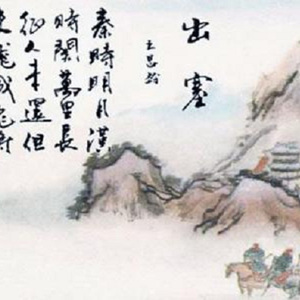 出塞
王昌龄
秦時明月漢
時關萬里長
征人未還但
使龍城飛將